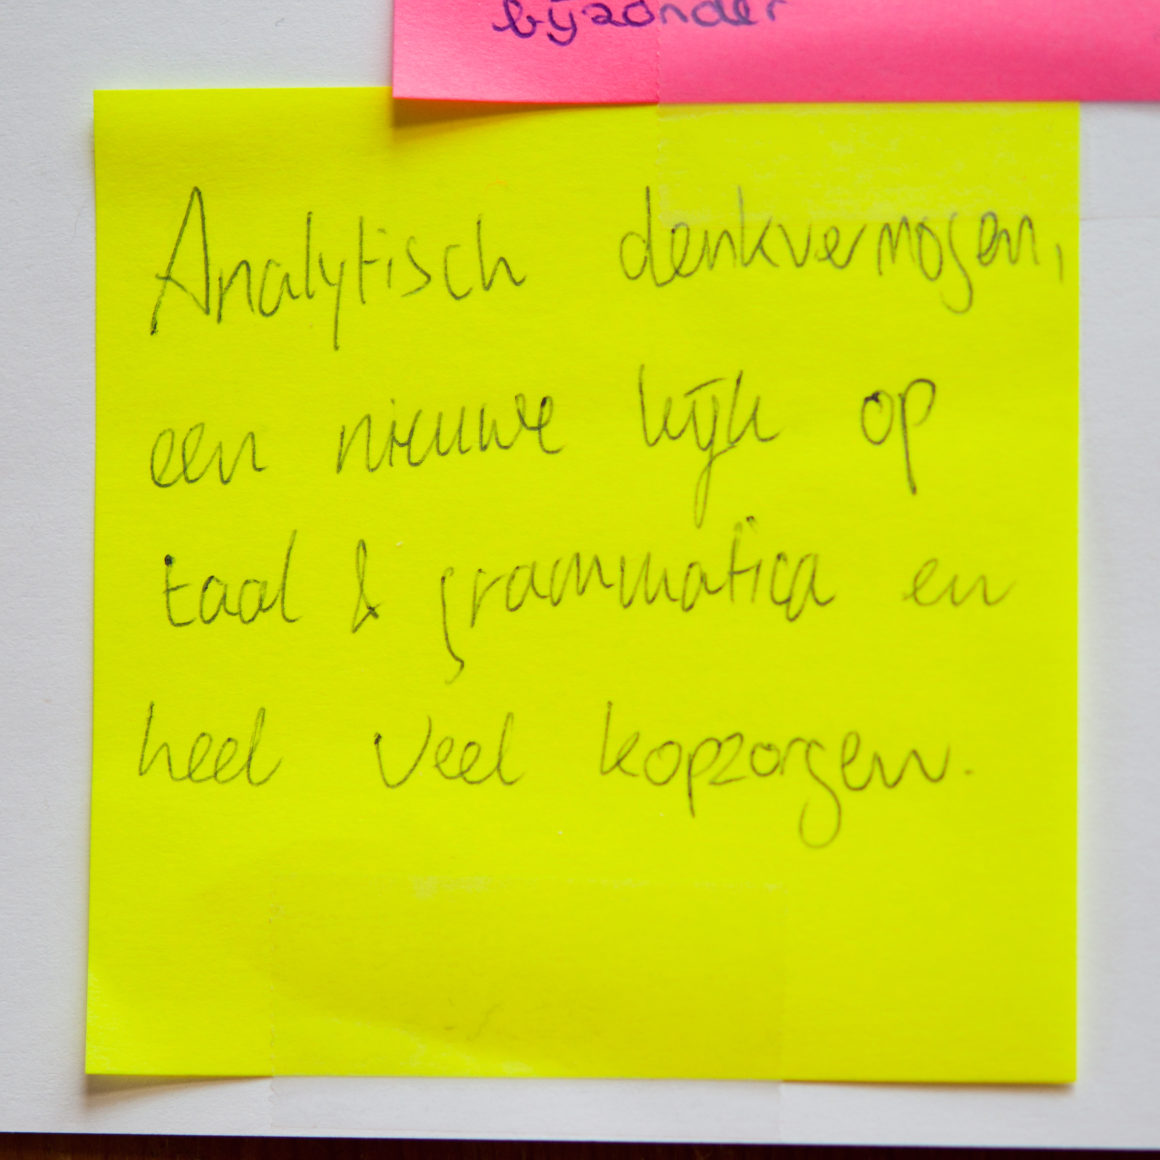 bijzonder
Analytisch denkvermogen,
een nieuwe kijk op
taal & grammatica en
heel veel kopzorgen.